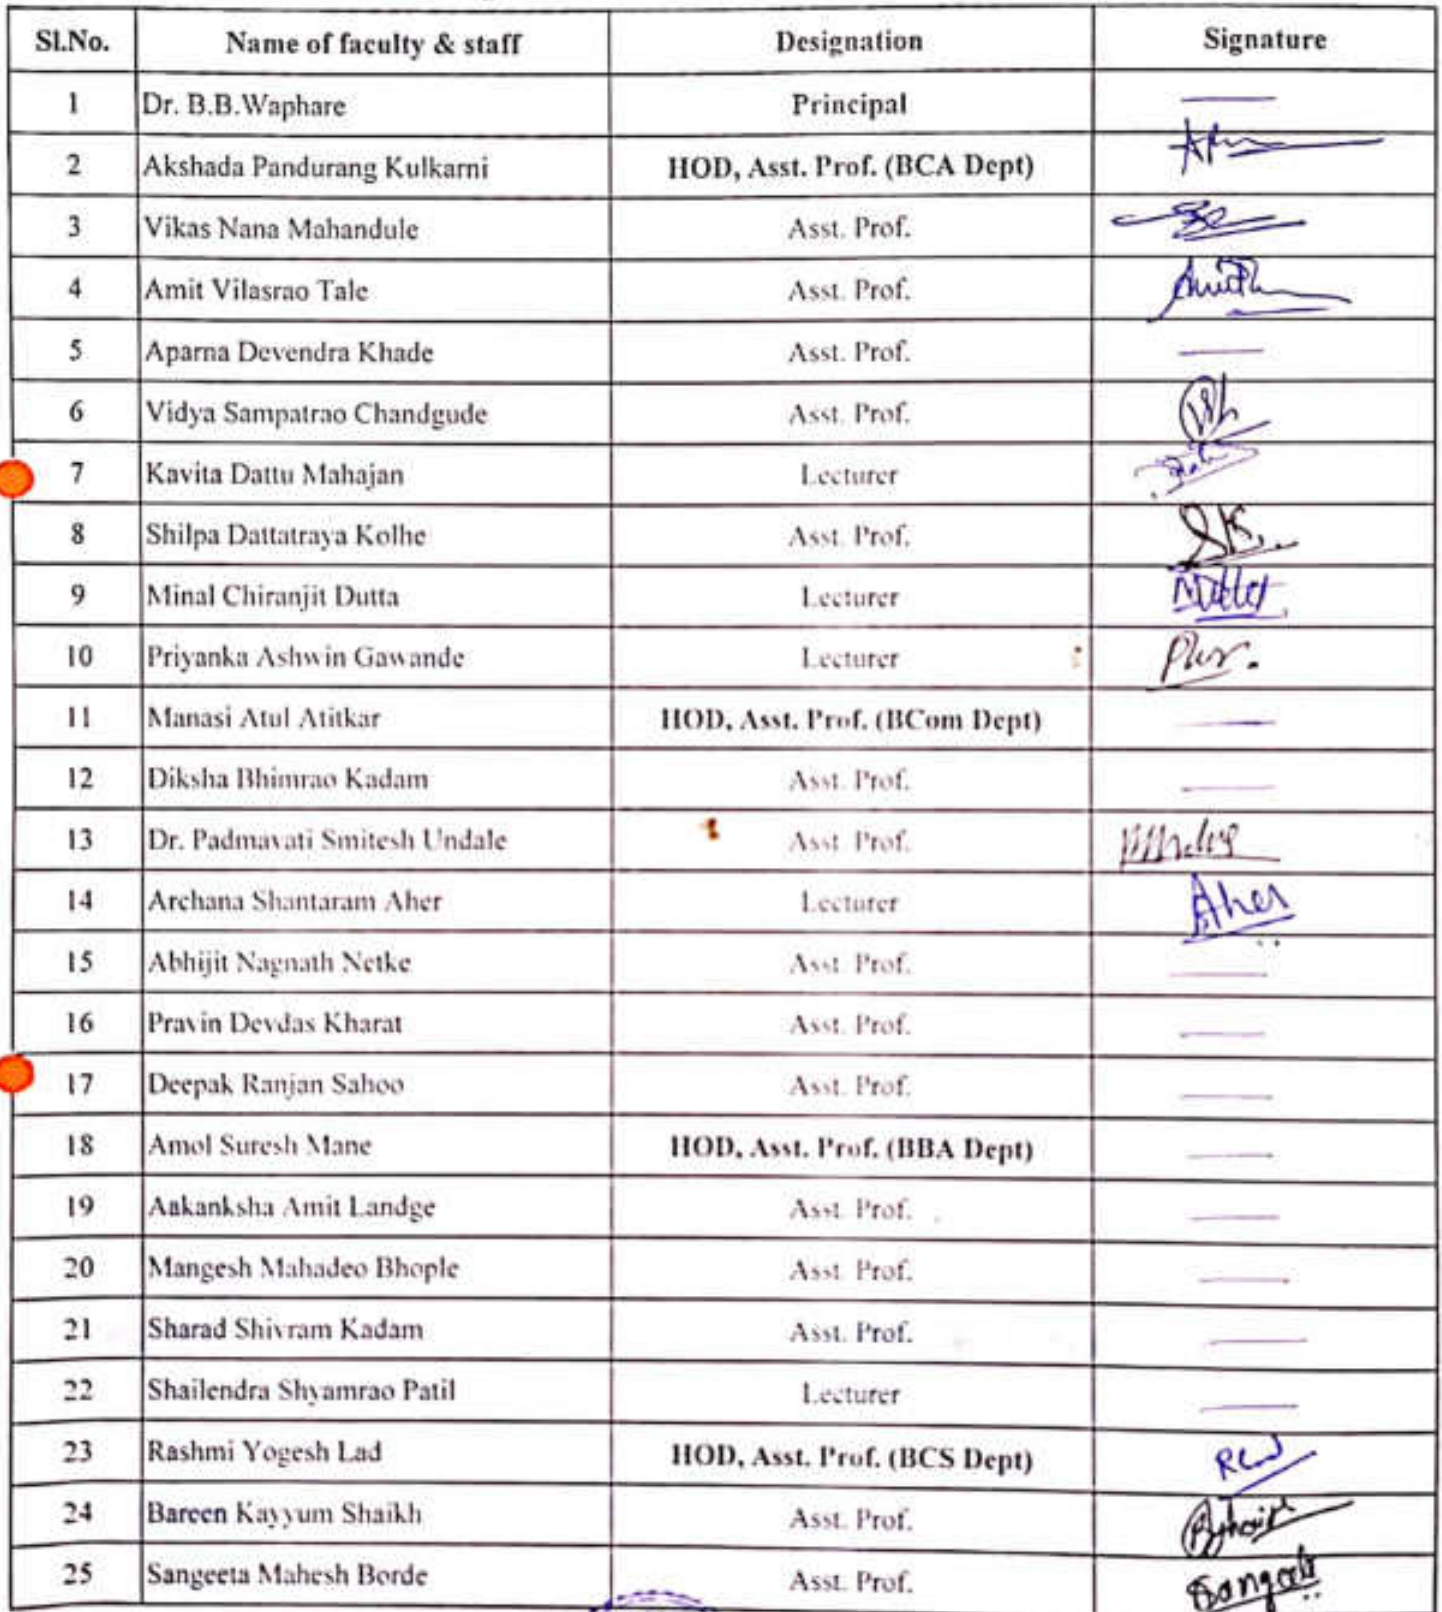 Sl.No. Name of faculty & staff Designation Signature
1 Dr. B.B.Waphare Principal
2 Akshada Pandurang Kulkarni HOD, Asst. Prof. (BCA Dept)
3 Vikas Nana Mahandule Asst. Prof.
4 Amit Vilasrao Tale Asst. Prof.
5 Aparna Devendra Khade Asst. Prof.
6 Vidya Sampatrao Chandgude Asst. Prof.
7 Kavita Dattu Mahajan Lecturer
8 Shilpa Dattatraya Kolhe Asst. Prof. SK.
9 Minal Chiranjit Dutta Lecturer
10 Priyanka Ashwin Gawande Lecturer
11 Manasi Atul Atitkar HOD, Asst. Prof. (BCom Dept)
12 Diksha Bhimrao Kadam Asst. Prof.
13 Dr. Padmavati Smitesh Undale Asst. Prof.
14 Archana Shantaram Aher Lecturer Aher
15 Abhijit Nagnath Netke Asst. Prof.
16 Pravin Devdas Kharat Asst. Prof.
17 Deepak Ranjan Sahoo Asst. Prof.
18 Amol Suresh Mane HOD, Asst. Prof. (BBA Dept)
19 Aakanksha Amit Landge Asst. Prof.
20 Mangesh Mahadeo Bhople Asst. Prof.
21 Sharad Shivram Kadam Asst. Prof.
22 Shailendra Shyamrao Patil Lecturer
23 Rashmi Yogesh Lad HOD, Asst. Prof. (BCS Dept)
24 Bareen Kayyum Shaikh Asst. Prof.
25 Sangeeta Mahesh Borde Asst. Prof. Sangeeta